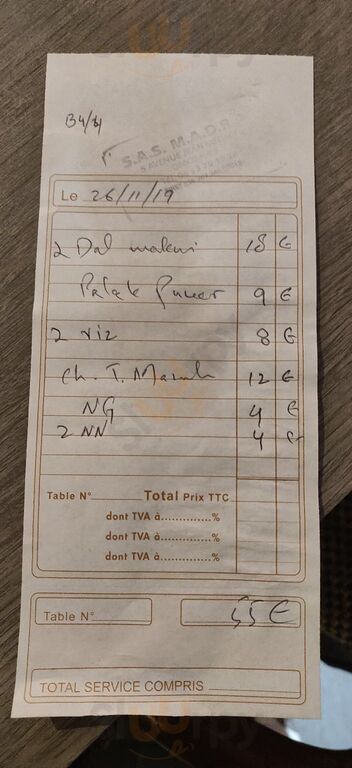 B4/4
S.A.S. M.A.D.R
5 AVENUE JEAN
Le 26/11/19
2 Dal makni 18 €
Palak Puneer 9 €
2 riz 8 €
ch. T. Masala 12 €
NG 4 €
2 NN 4 €
Table N° Total Prix TTC
dont TVA à..............%
dont TVA à..............%
dont TVA à..............%
Table N° 55 €
TOTAL SERVICE COMPRIS